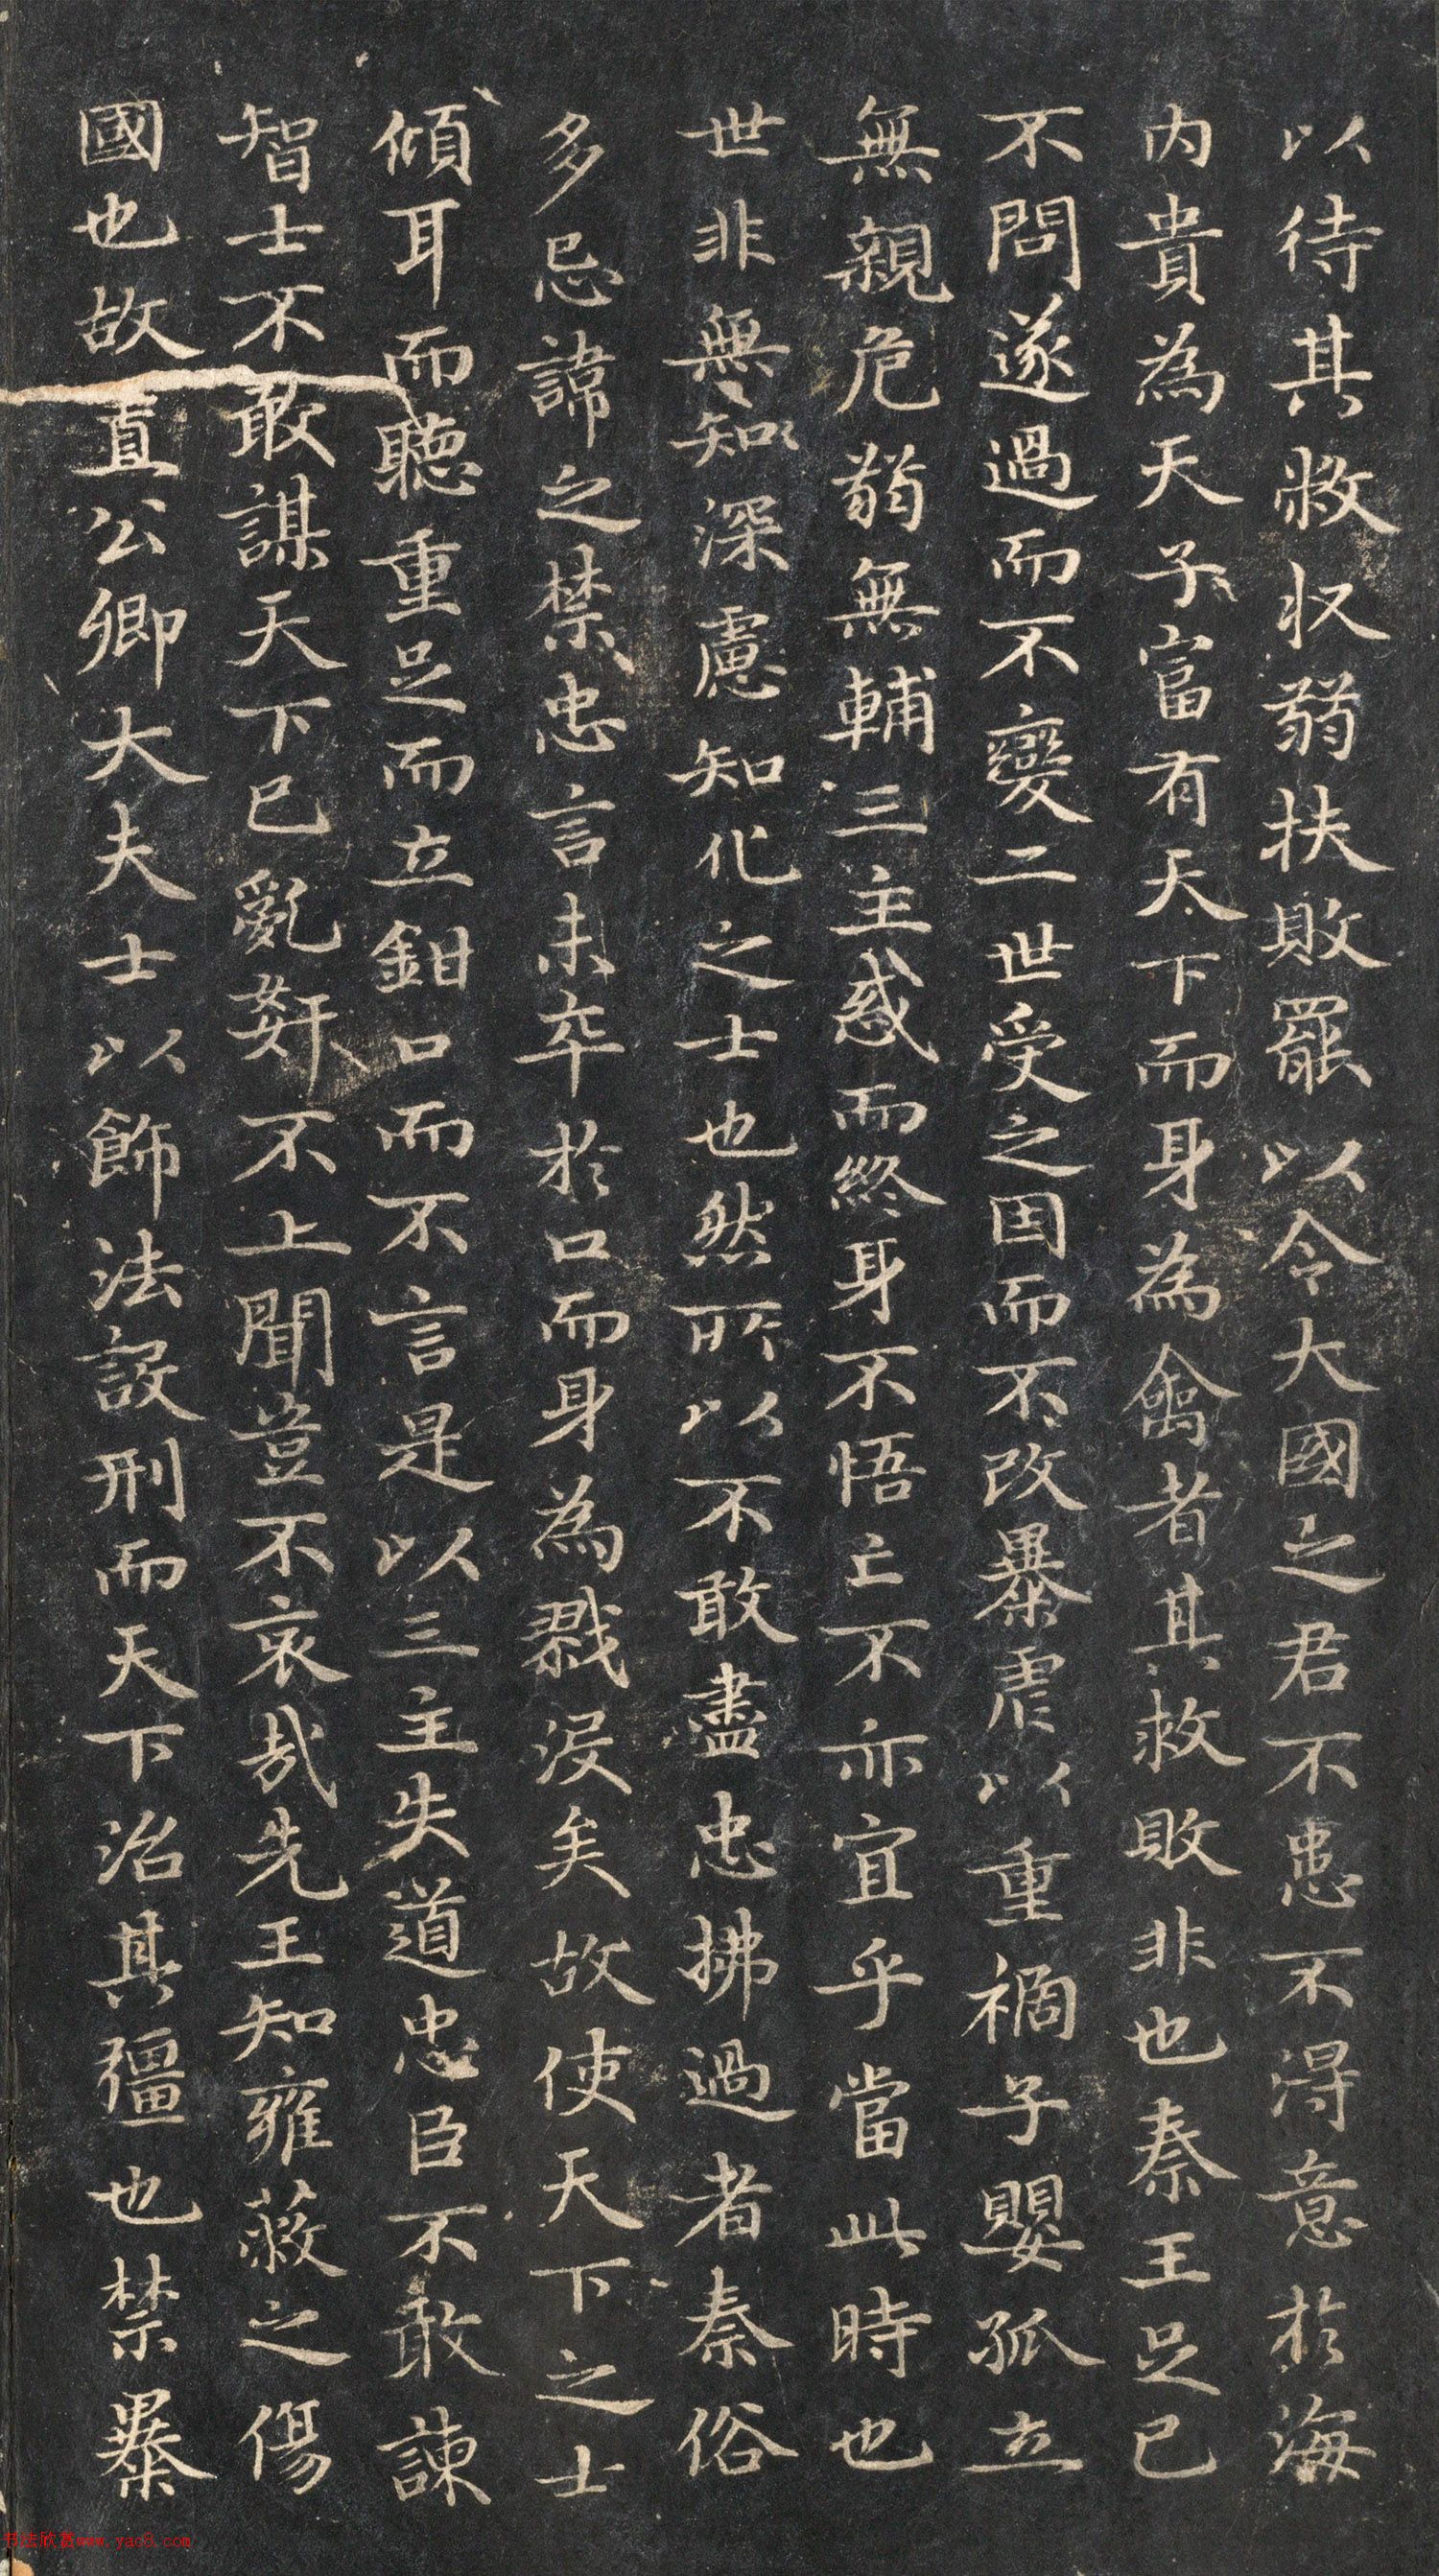 以待其救収弱扶敗罷以令大國之君不患不得意於海
内貴為天子富有天下而身為禽者其救敗非也秦王足已
不問遂過而不變二世受之因而不改暴虐以重禍子嬰孤立
無親危弱無輔三主惑而終身不悟亡不亦宜乎當此時也
世非無知深慮知化之士也然所以不敢盡忠拂過者秦俗
多忌諱之禁忠言未卒於口而身為戮没矣故使天下之士
傾耳而聽重足而立鉗口而不言是以三主失道忠臣不敢諫
智士不敢謀天下已亂姧不上聞豈不哀哉先王知雍蔽之傷
國也故置公卿大夫士以飾法設刑而天下治其彊也禁暴
书法欣赏www.yac8.com